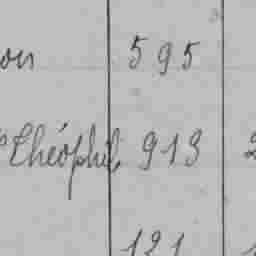 595
Théophil 913
121